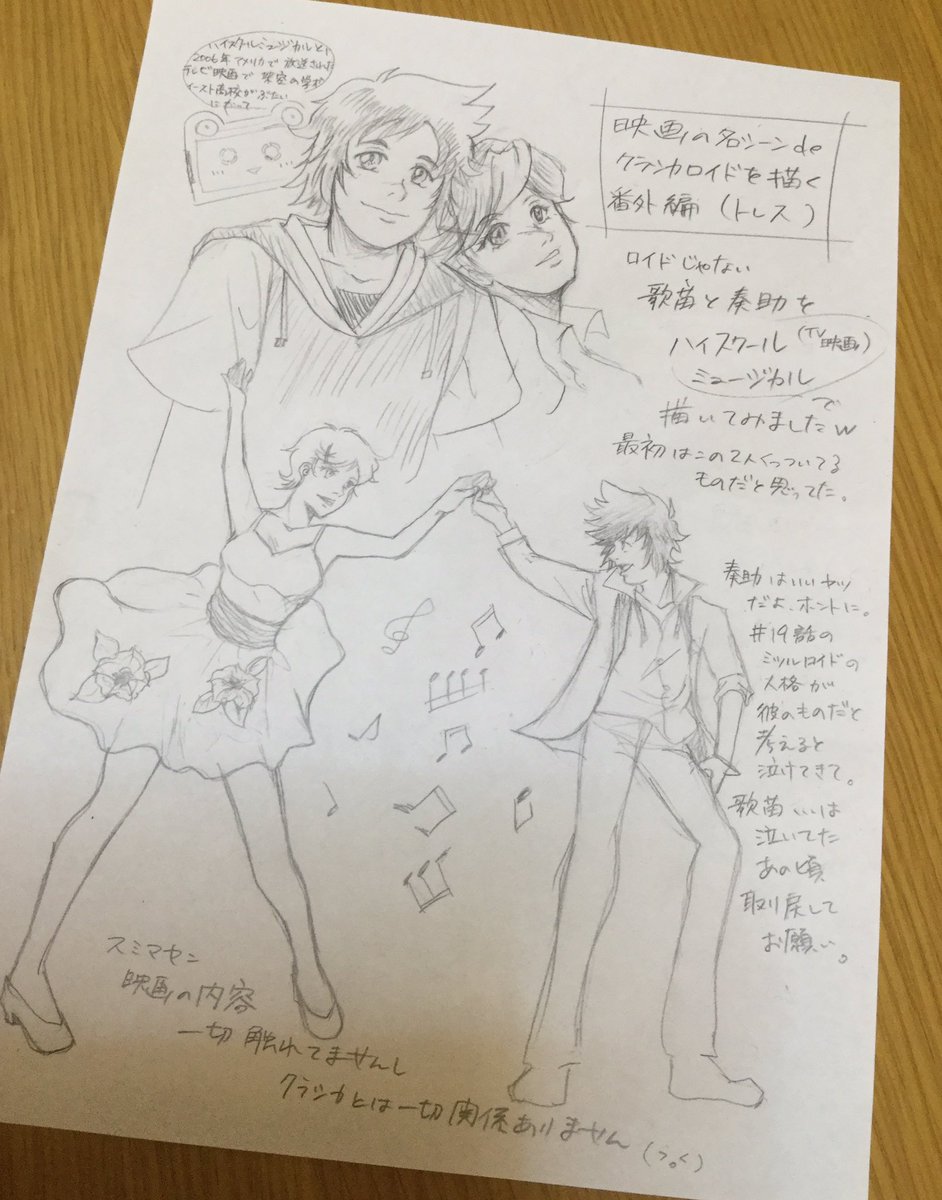 ハイスクールミュージカルとは
2006年アメリカで放送された
テレビ映画で架空の学校
イースト高校がぶたい
になって
映画の名シーンde
クラシカロイドを描く
番外編（トレス）
ロイドじゃない
歌苗と奏助を
ハイスクール（TV映画）
ミュージカル
で
描いてみましたw
最初はこの2人くっついてる
ものだと思ってた。
奏助はいいヤツ
だよ、ホントに。
#19話の
ミツルロイドの
人格が
彼のものだと
考えると
泣けてきて。
歌苗…は
泣いてた
あの頃
取り戻して
お願い。
スミマセン
映画の内容
一切触れてませんし
クラシカとは一切関係ありません（つ。く）